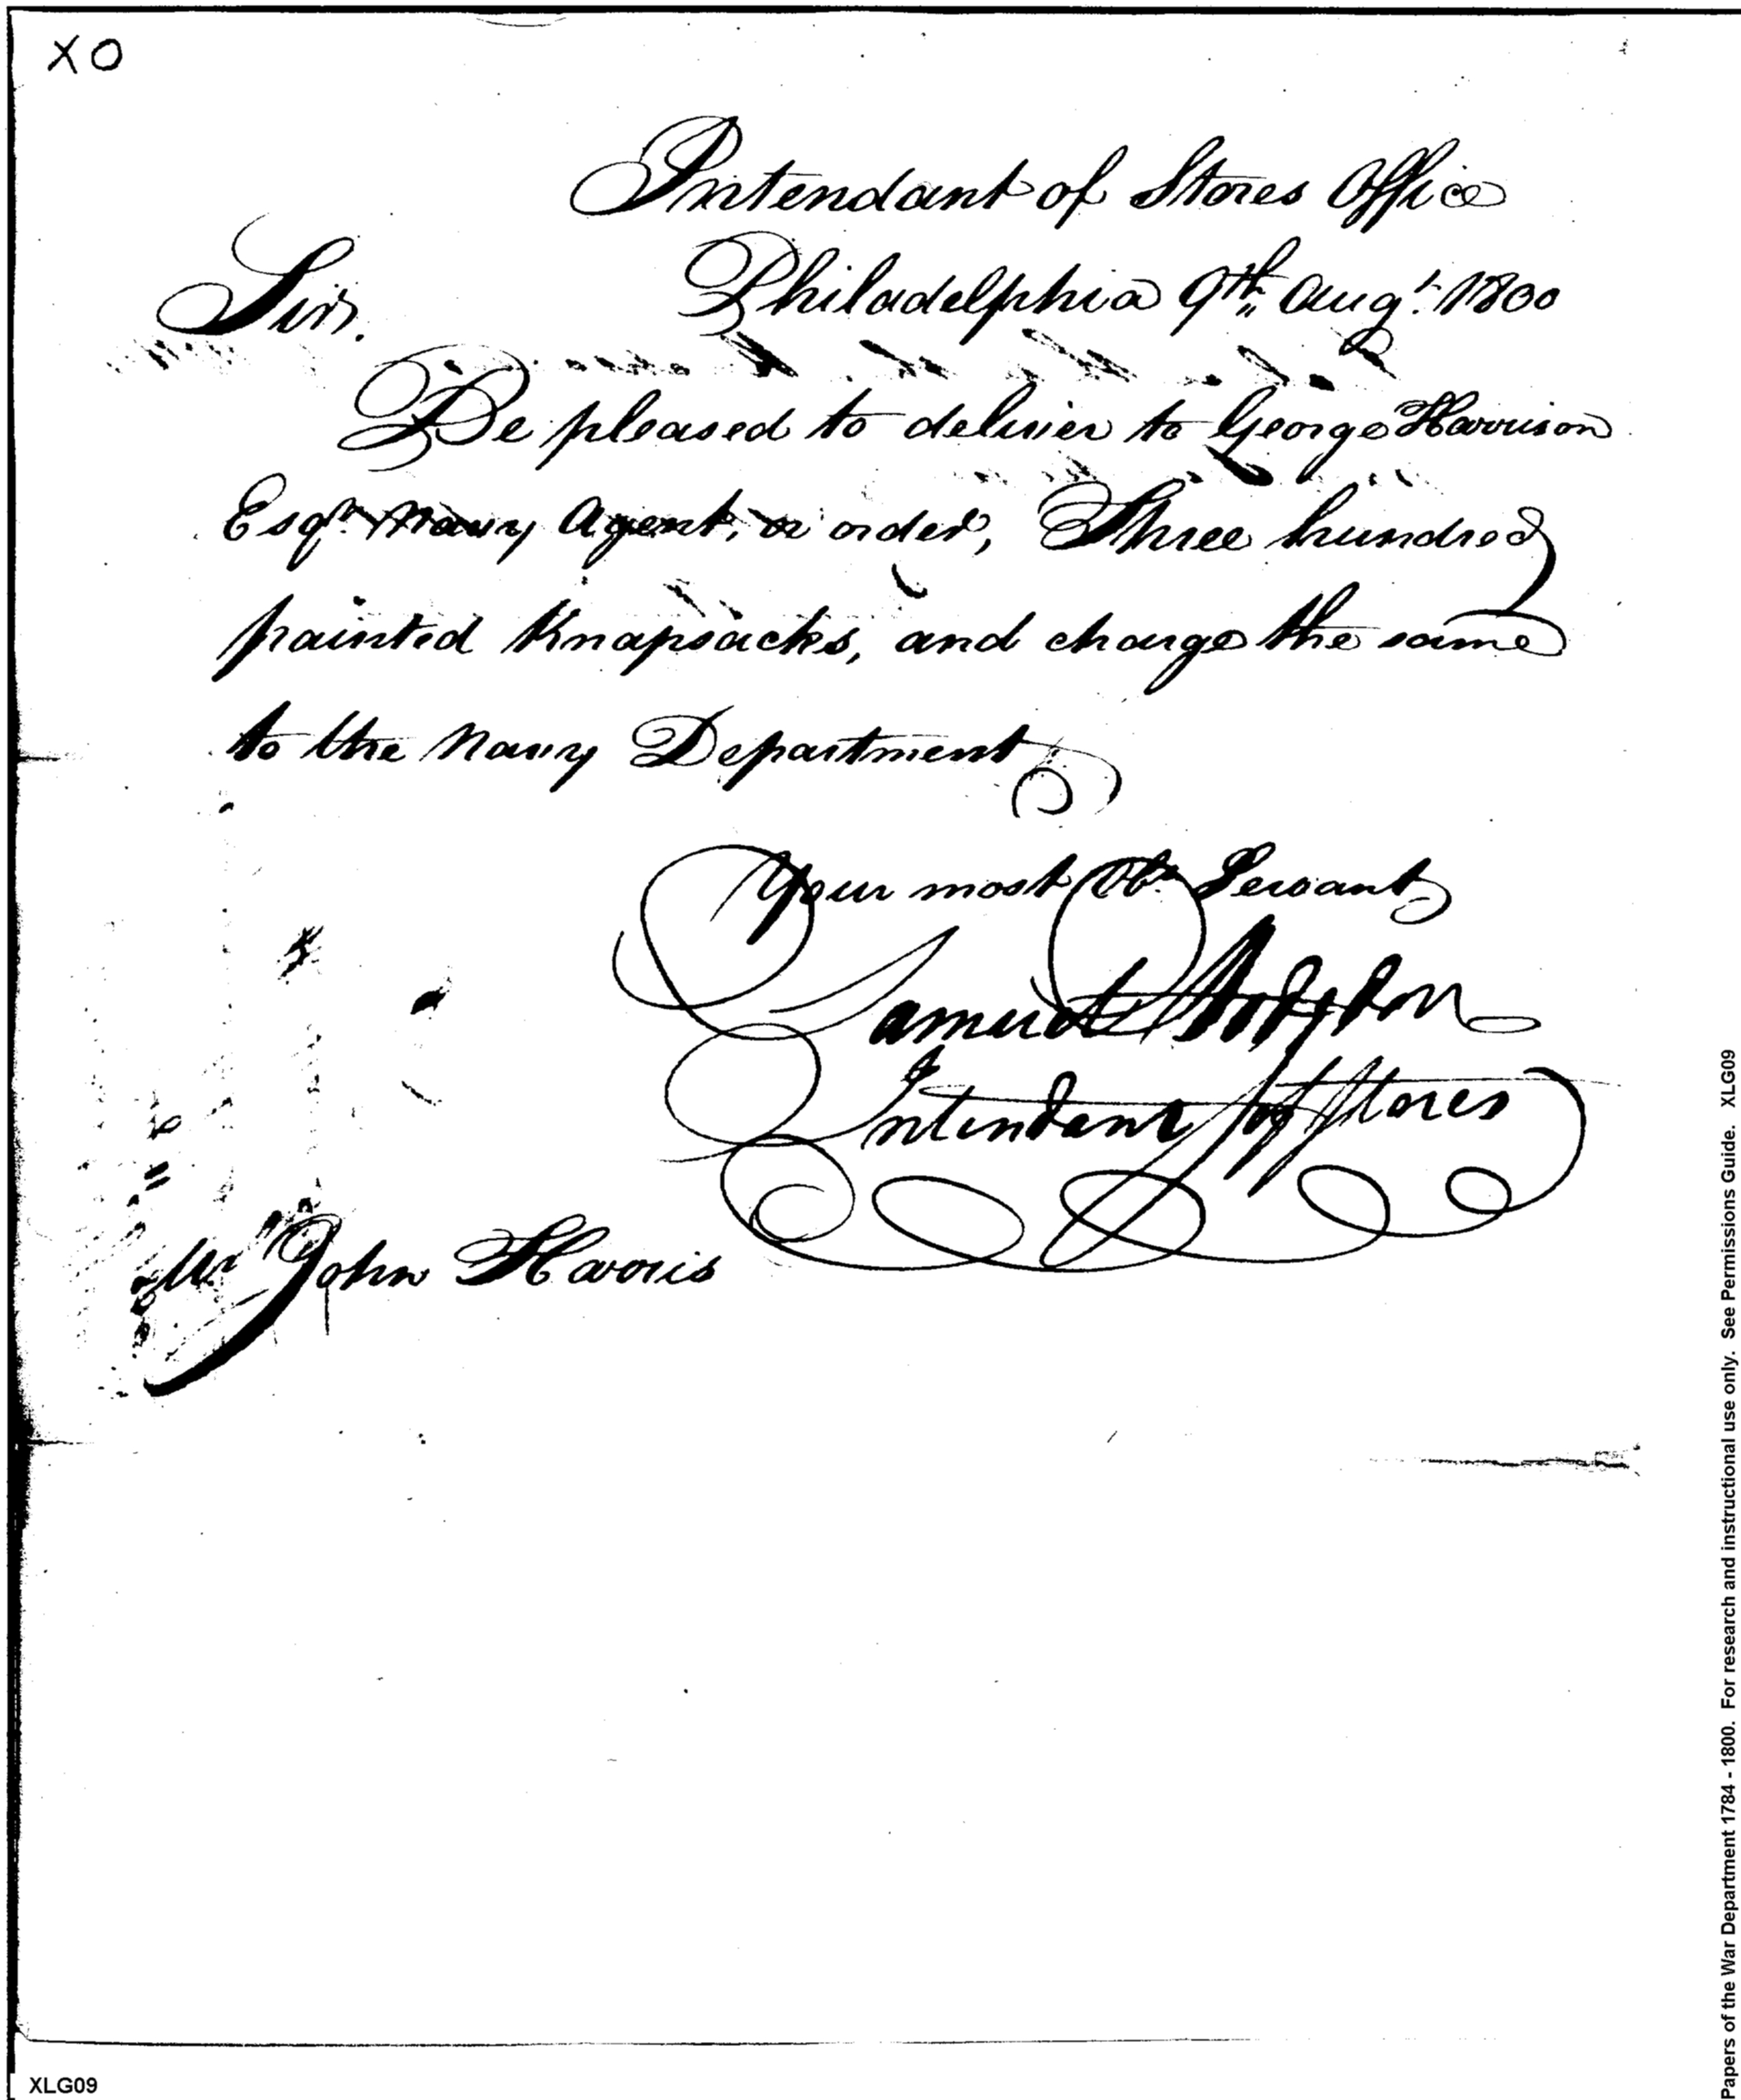 XO
Intendant of Stores Office
Philadelphia 9th Augt. 1800
Sir.
Be pleased to deliver to George Harrison
Esqr. Navy Agent, or order, Three hundred
painted Knapsacks, and charge the same
to the Navy Department
Your most Obt. Servant
Samuel Hodgdon
Intendant of Stores
Mr John Harris
XLG09
Papers of the War Department 1784 - 1800. For research and instructional use only. See Permissions Guide. XLG09